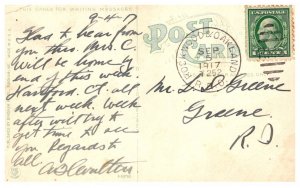 THIS SPACE FOR WRITING MESSAGES
POST
9-4-17
Glad to hear from
you this. Mrs. C.
Will be home by
end of this week.
Hartford. Ct. all
next week. Week
after will try to
get time to see
you Regards to
all
SEP
1917
Mr. Greene
Greene
R.I.